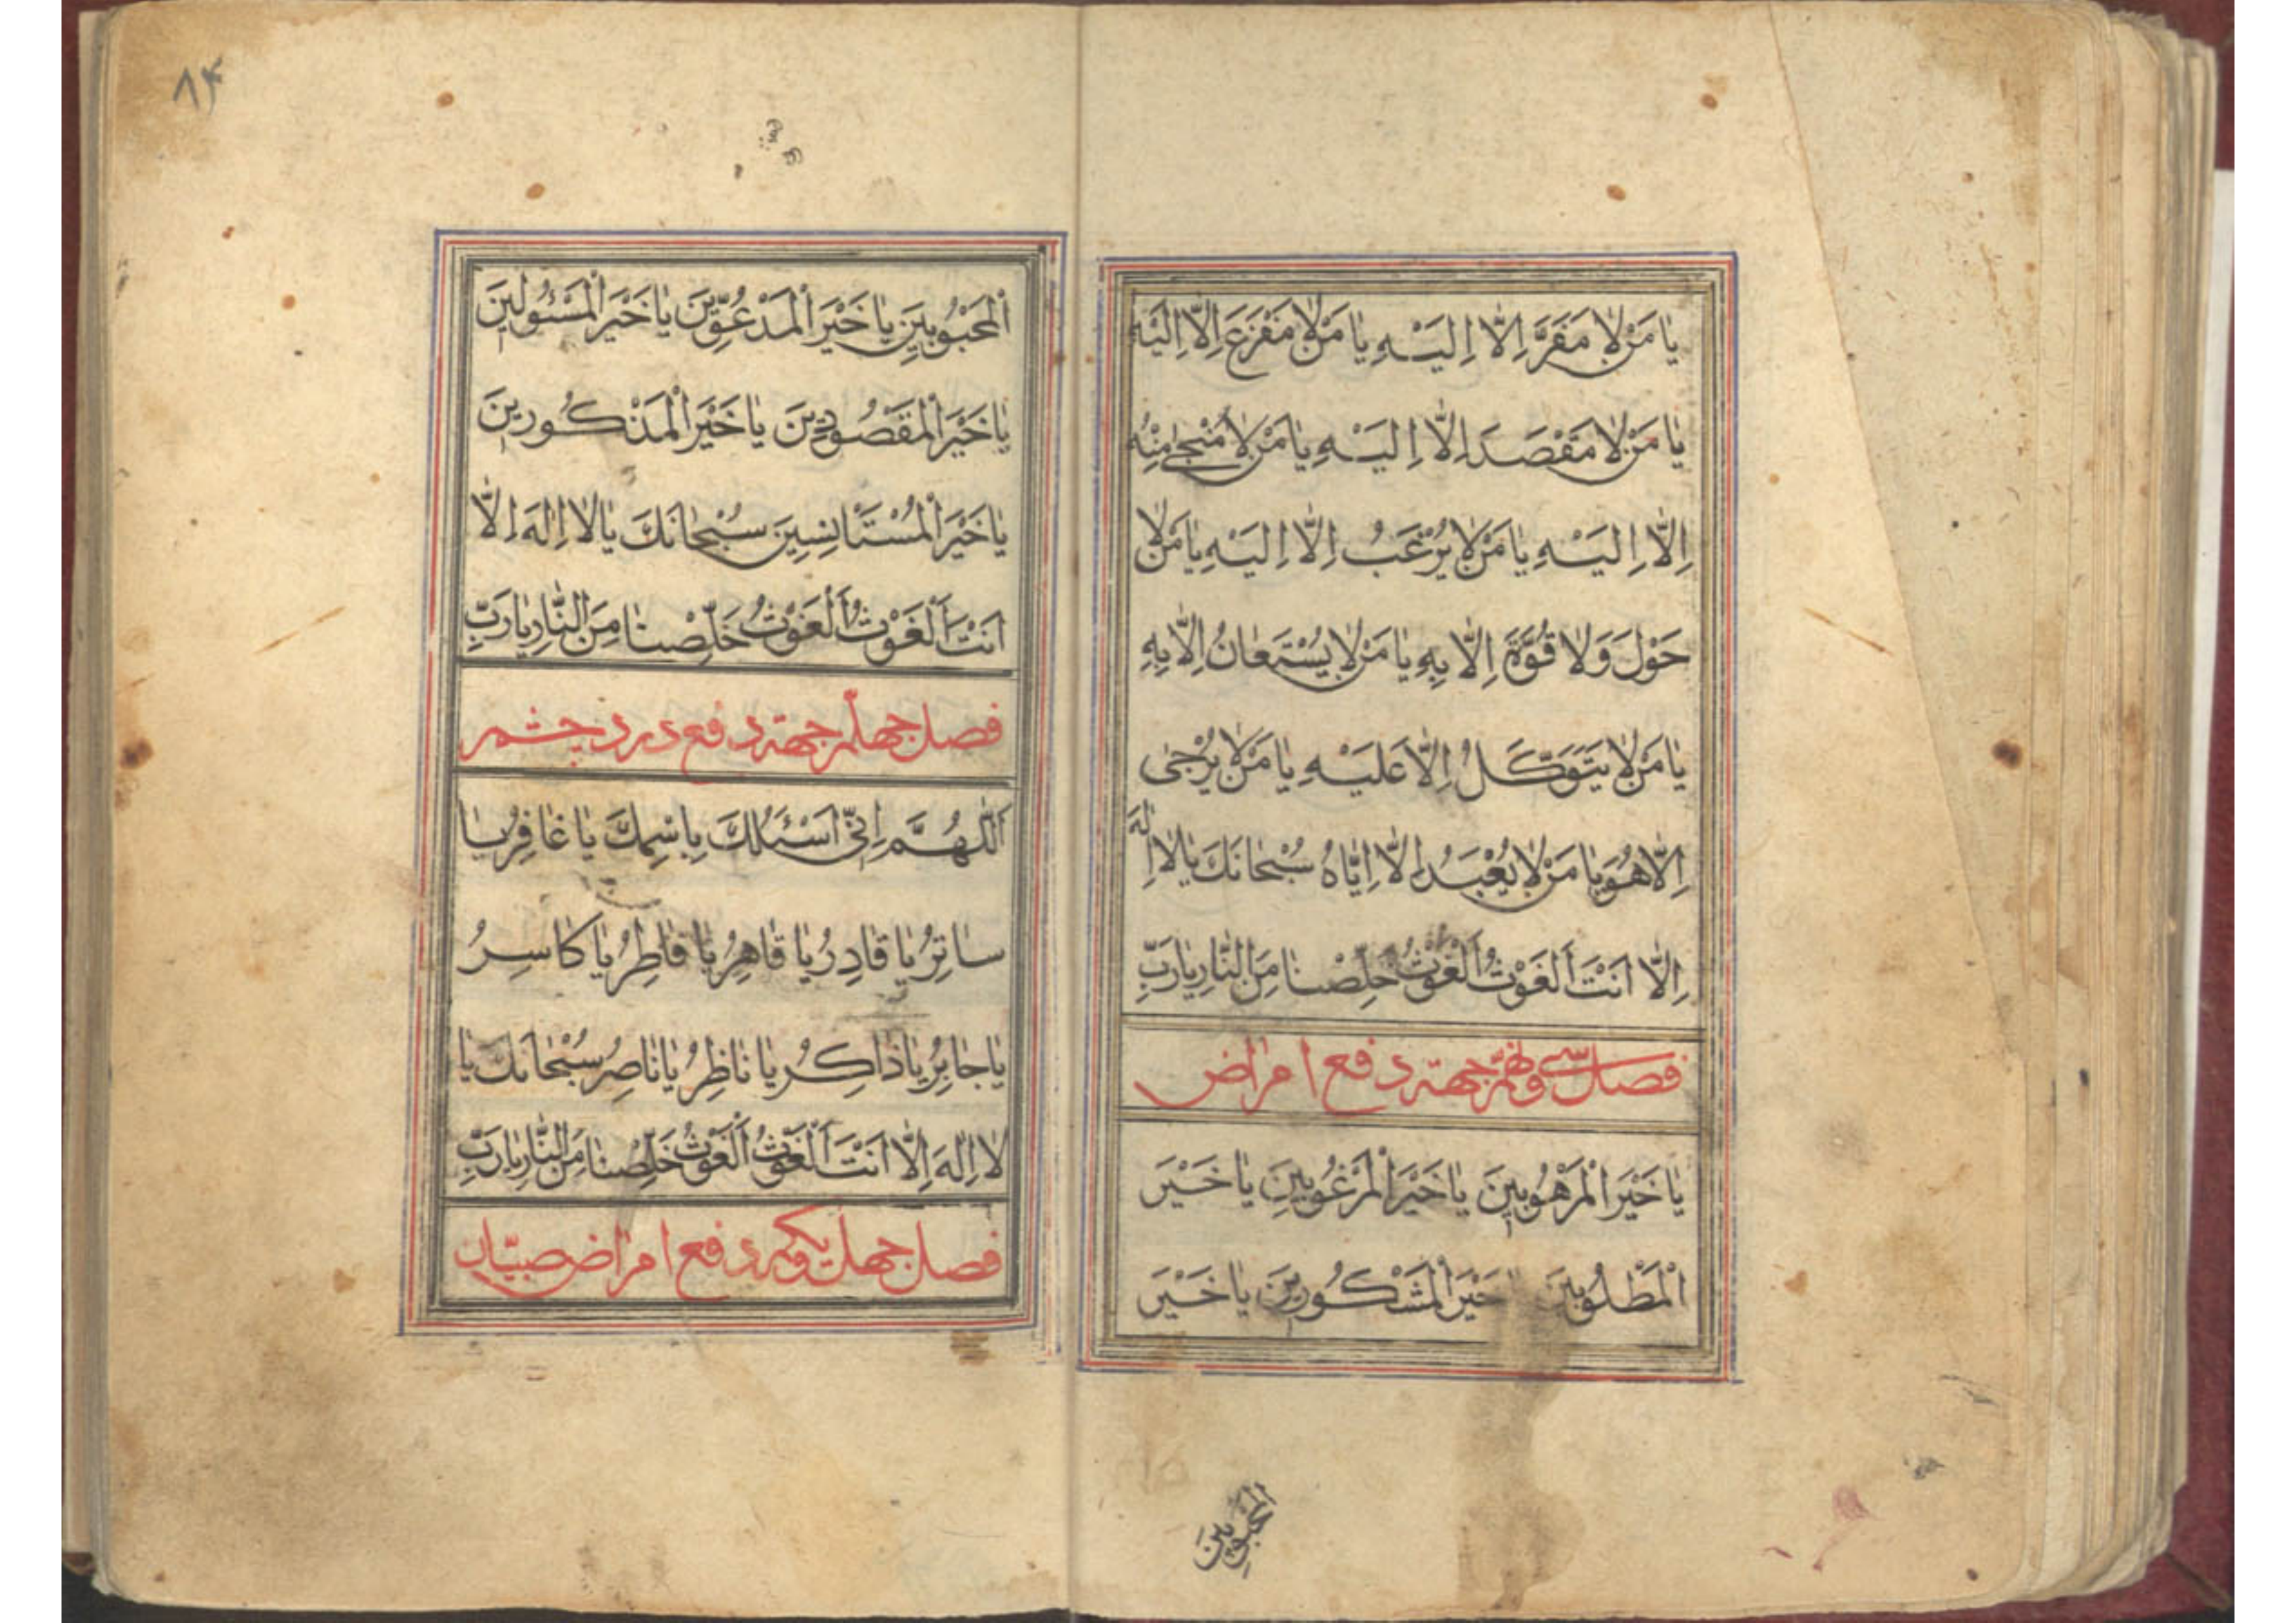 يا مَنْ لا مَفَرَّ اِلّا اِلَيْهِ يا مَنْ لا مَفْزَعَ اِلّا اِلَيْهِ
يا مَنْ لا مَقْصَدَ اِلّا اِلَيْهِ يا مَنْ لا مَنْجى مِنْهُ
اِلّا اِلَيْهِ يا مَنْ لا يُرْغَبُ اِلّا اِلَيْهِ يا مَنْ لا
حَوْلَ وَلا قُوَّةَ اِلّا بِهِ يا مَنْ لا يُسْتَعانُ اِلّا بِهِ
يا مَنْ لا يَتَوَكَّلُ اِلّا عَلَيْهِ يا مَنْ لا يُرْجى
اِلّا هُوَ يا مَنْ لا يُعْبَدُ اِلّا اِيّاهُ سُبْحانَكَ يا لا اِلهَ
اِلّا اَنْتَ اَلْغَوْثُ اَلْغَوْثُ خَلِّصْنا مِنَ النّارِ يا رَبِّ
فصل سى ونهم جهته دفع امراض
يا خَيْرَ الْمَرْهُوبينَ يا خَيْرَ الْمَرْغُوبينَ يا خَيْرَ
الْمَطْلُوبينَ خَيْرَ الْمَشْكُورينَ يا خَيْرَ
الْمَحْبُوبينَ
٨٤
الْمَحْبُوبينَ يا خَيْرَ الْمَدْعُوّينَ يا خَيْرَ الْمَسْئُولينَ
يا خَيْرَ الْمَقْصُودينَ يا خَيْرَ الْمَذْكُورينَ
يا خَيْرَ الْمُسْتَأْنِسينَ سُبْحانَكَ يا لا اِلهَ اِلّا
اَنْتَ اَلْغَوْثُ اَلْغَوْثُ خَلِّصْنا مِنَ النّارِ يا رَبِّ
فصل چهلم جهته دفع درد چشم
اَللّهُمَّ اِنّى اَسْئَلُكَ بِاسْمِكَ يا غافِرُ يا
ساتِرُ يا قادِرُ يا قاهِرُ يا فاطِرُ يا كاسِرُ
يا جابِرُ يا ذاكِرُ يا ناظِرُ يا ناصِرُ سُبْحانَكَ يا
لا اِلهَ اِلّا اَنْتَ اَلْغَوْثُ اَلْغَوْثُ خَلِّصْنا مِنَ النّارِ يا رَبِّ
فصل چهل ويكم دفع امراض صبيّان